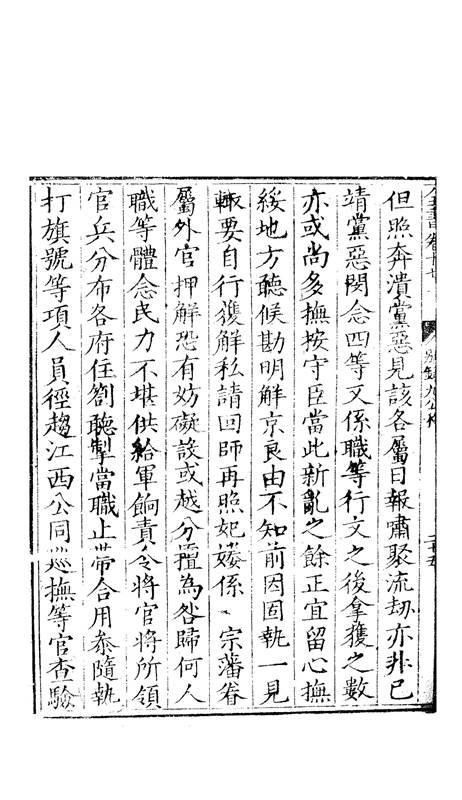 但照奔潰黨惡見該各屬日報嘯聚流刼亦非已
靖黨惡閔念四等又係職等行文之後拿獲之數
亦或尚多撫按守臣當此新亂之餘正宜留心撫
綏地方聽候勘明解京良由不知前因固執一見
輒要自行獲解私請回師再照妃媵係 宗藩眷
屬外官押解恐有妨礙設或越分擅為咎歸何人
職等體念民力不堪供給軍餉責令將官將所領
官兵分布各府住劄聽掣當職止帶合用叅隨執
打旗號等項人員徑趨江西公同巡撫等官查驗
全書卷十七
別錄九公移